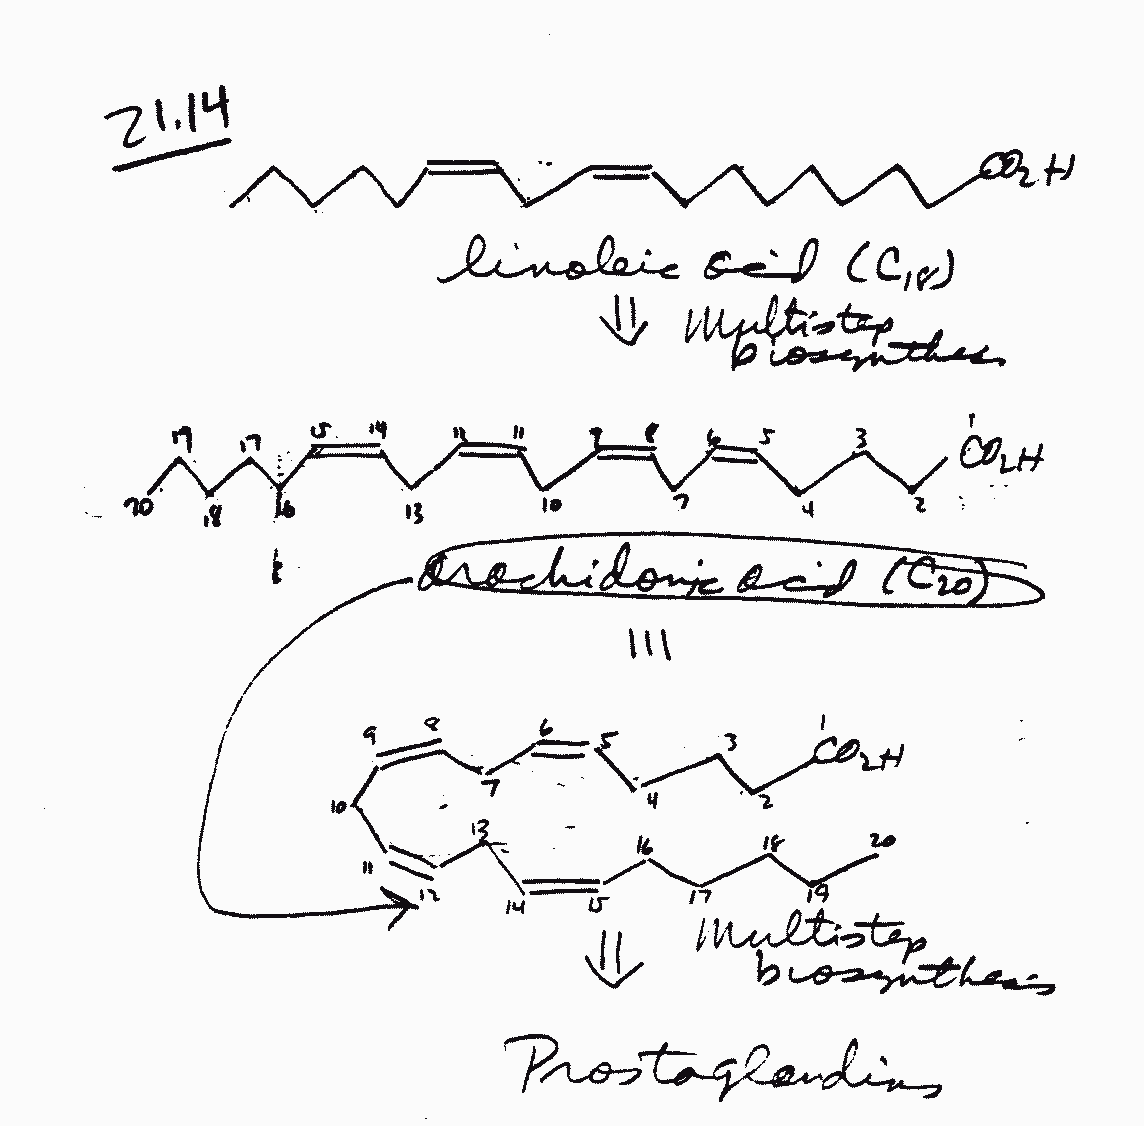 21.14
CO2H
linoleic acid (C18)
⇓ Multistep
biosynthesis
19 17 15 14 12 11 9 8 6 5 3 1
CO2H
20 18 16 13 10 7 4 2
arachidonic acid (C20)
|||
9 8 6 5 3 1
CO2H
10 7 4 2
11 12 13 16 18 20
14 15 17 19
⇓ Multistep
biosynthesis
Prostaglandins